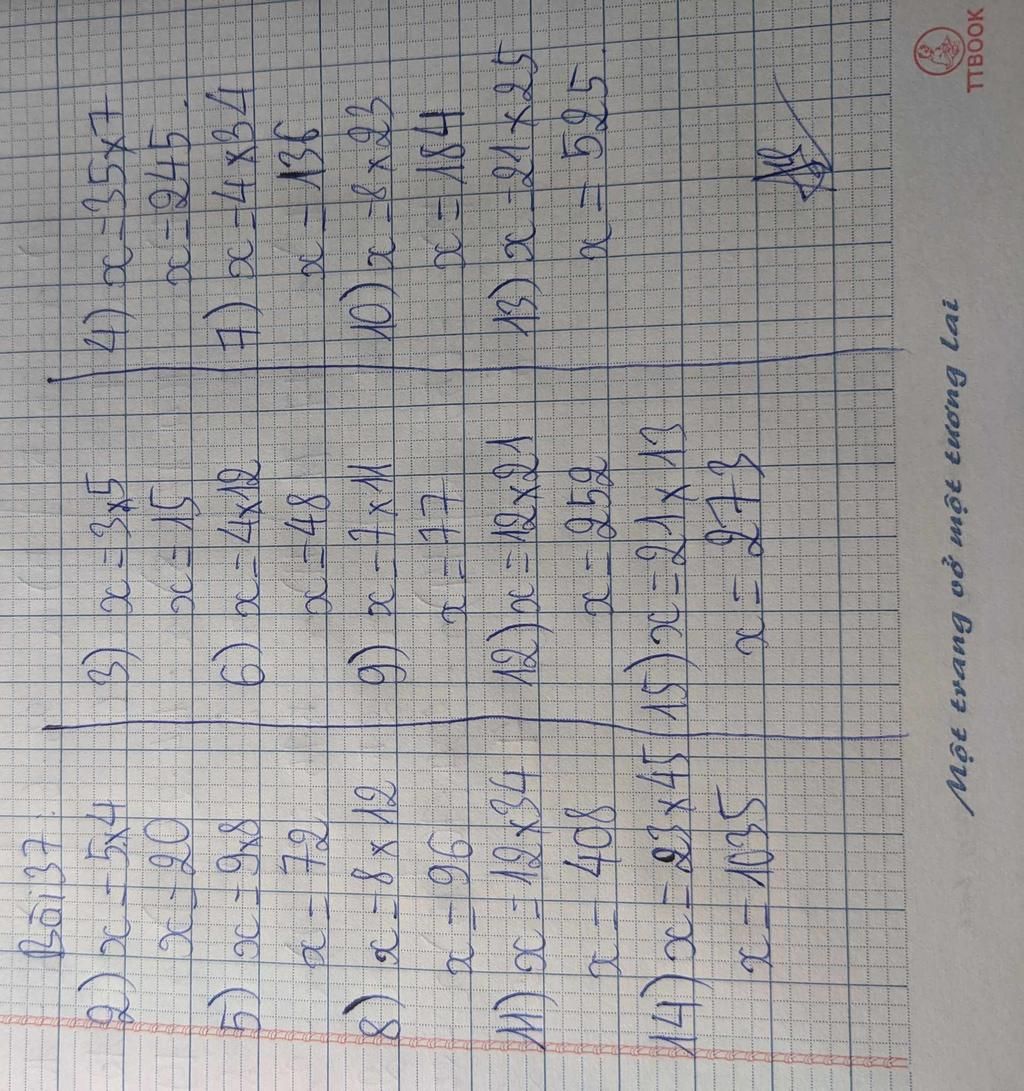 Bài 37:
2) x = 5x4
x = 20
3) x = 3x5
x = 15
4) x = 35x7
x = 245.
5) x = 9x8
x = 72
6) x = 4x12
x = 48
7) x = 4x34
x = 136
8) x = 8x12
x = 96
9) x = 7x11
x = 77
10) x = 8x23
x = 184
11) x = 12x34
x = 408
12) x = 12x21
x = 252
13) x = 21x25
x = 525.
14) x = 23x45
x = 1035
15) x = 21x13
x = 273
Một trang vở một tương lai
TTBOOK